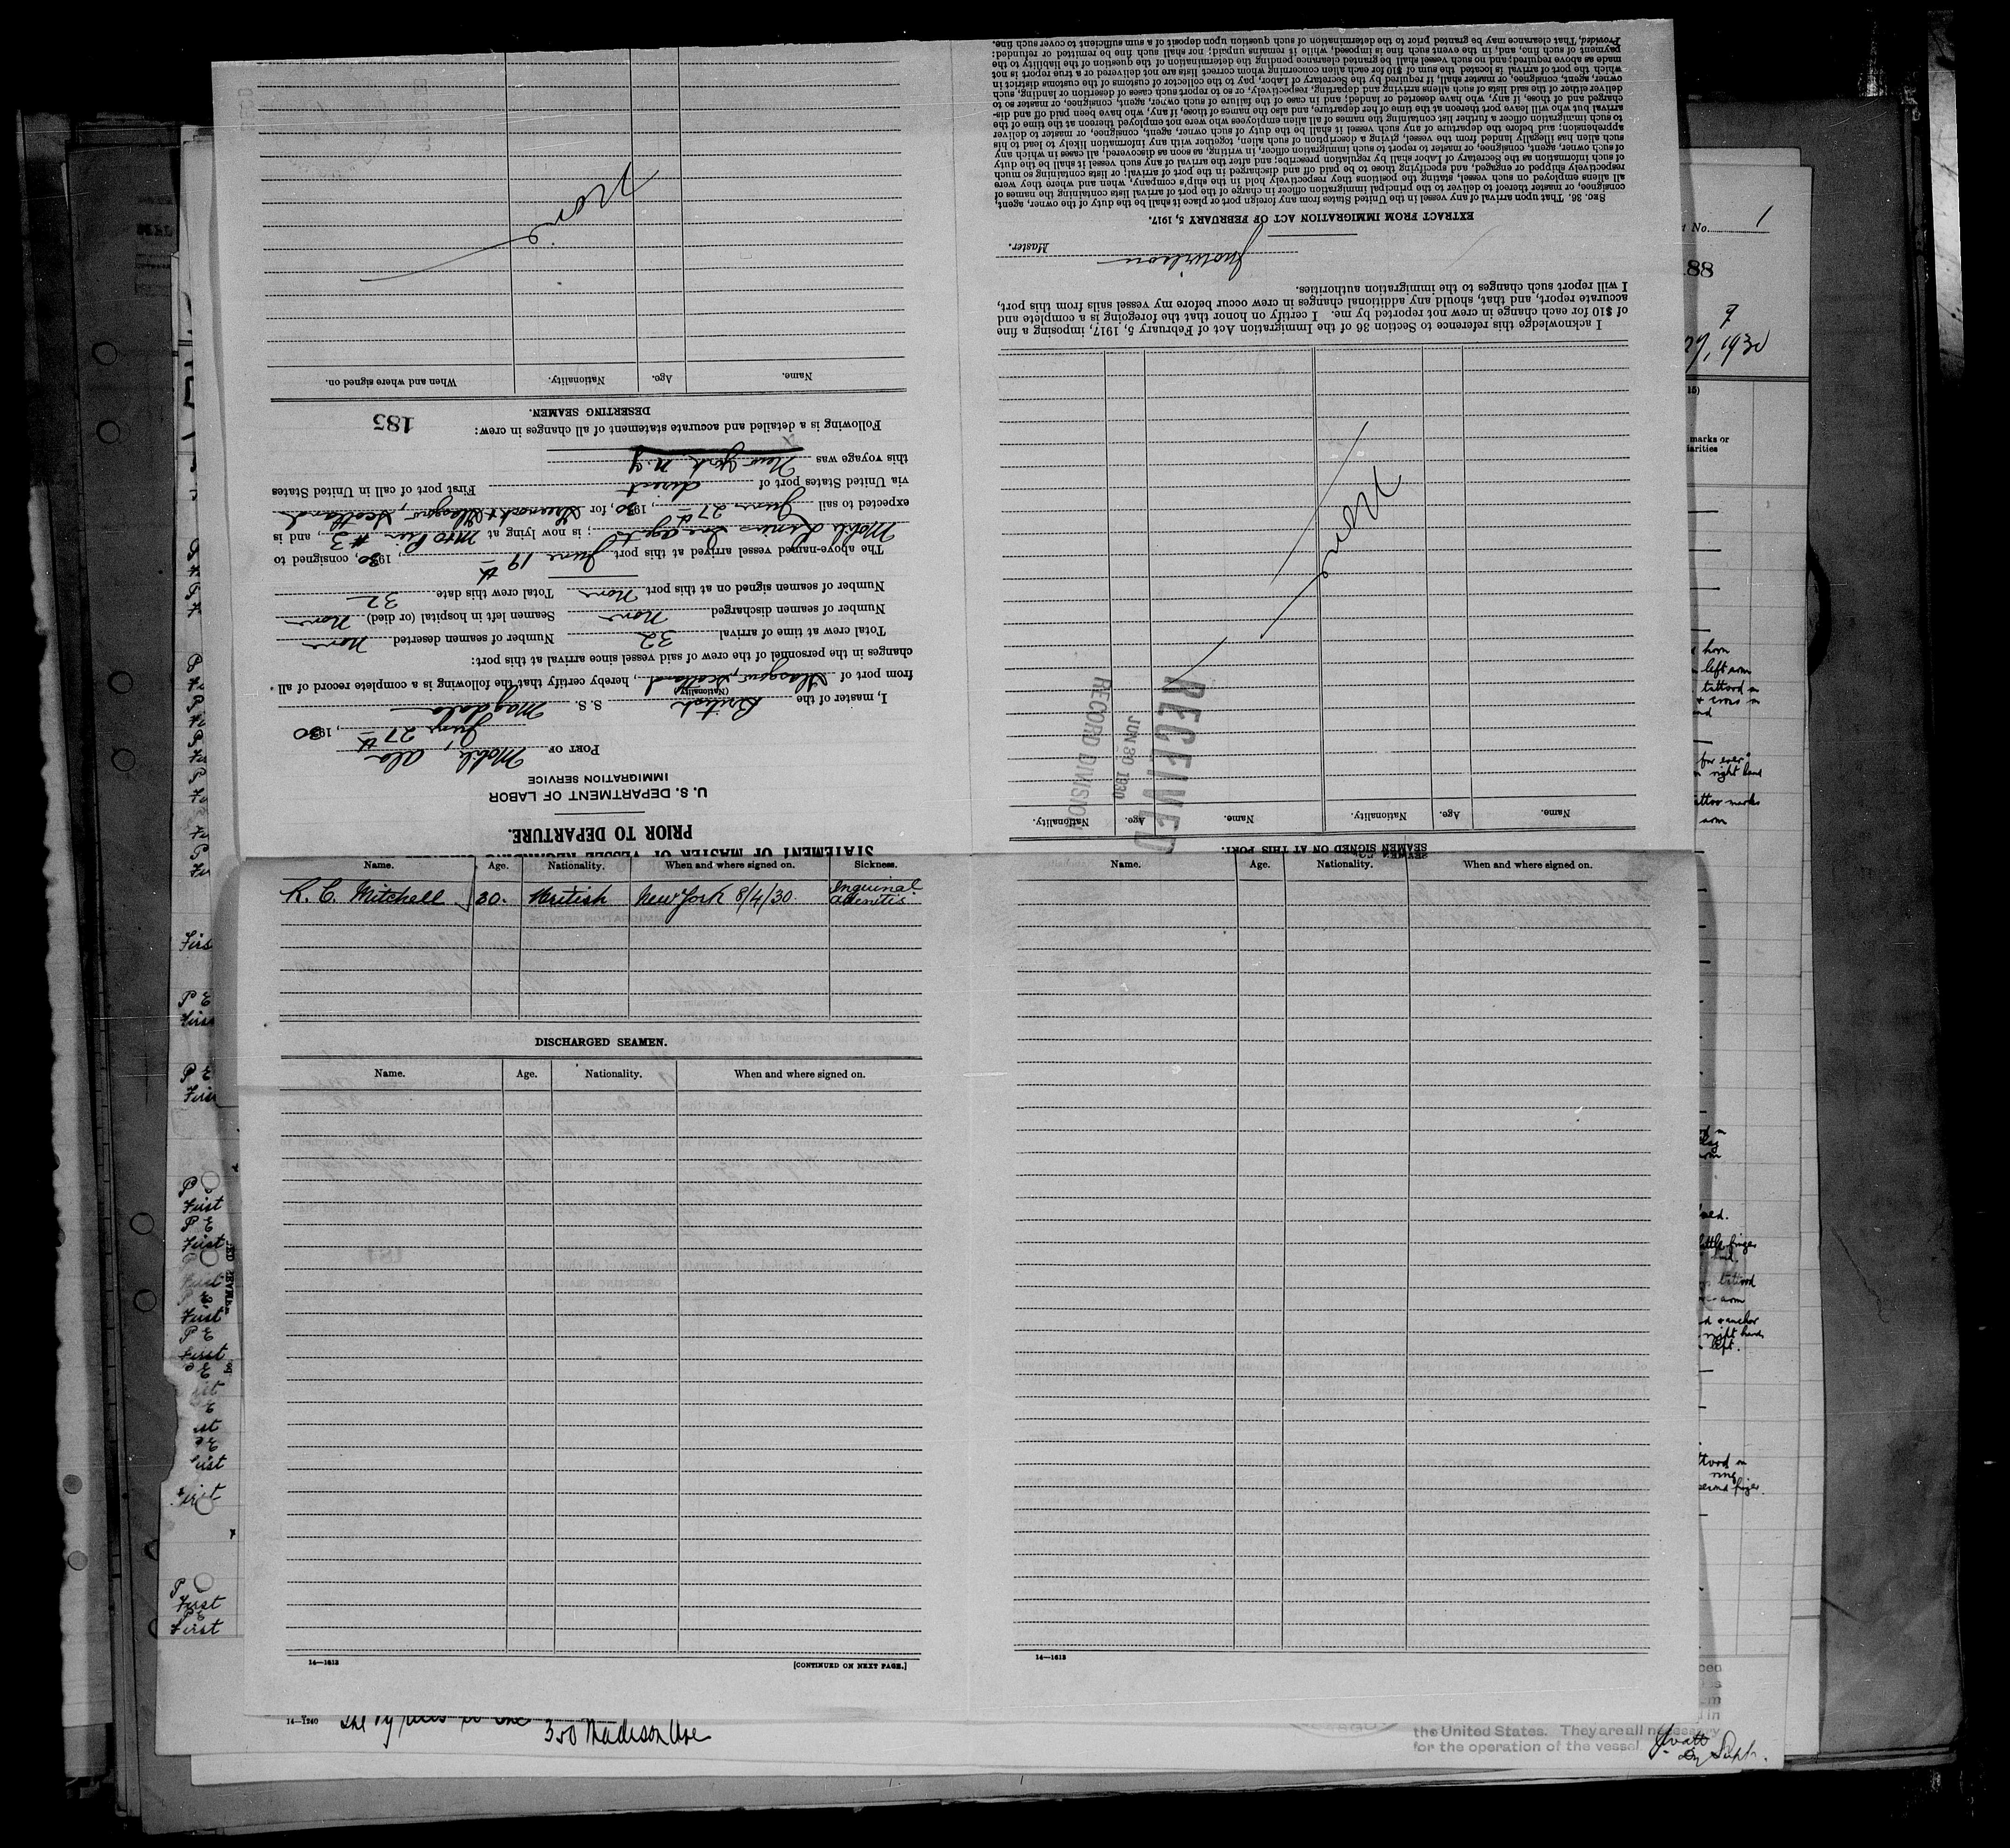 STATEMENT OF MASTER OF VESSEL REGARDING
PRIOR TO DEPARTURE.
U. S. DEPARTMENT OF LABOR
IMMIGRATION SERVICE
PORT OF Mobile, Ala
June 27th, 1930
I, master of the British S. S. Magdala
(Nationality)
from port of Glasgow, Scotland, hereby certify that the following is a complete record of all
changes in the personnel of the crew of said vessel since arrival at this port:
Total crew at time of arrival 32 Number of seamen deserted None
Number of seamen discharged None Seamen left in hospital (or died) None
Number of seamen signed on at this port None Total crew this date. 32
The above-named vessel arrived at this port June 19th, 1930, consigned to
Mobile Liners Inc agts; is now lying at M&O Pier #3, and is
expected to sail June 27th, 1930, for Greenock & Glasgow, Scotland
via United States port of direct First port of call in United States
this voyage was New York N.Y
Following is a detailed and accurate statement of all changes in crew:
185
DESERTING SEAMEN.
Name. Age. Nationality. When and where signed on.
None
SEAMEN SIGNED ON AT THIS PORT.
Name. Age. Nationality. Name. Age. Nationality.
RECEIVED
JUN 30 1930
RECORD DIVISION
None
I acknowledge this reference to Section 36 of the Immigration Act of February 5, 1917, imposing a fine
of $10 for each change in crew not reported by me. I certify on honor that the foregoing is a complete and
accurate report, and that, should any additional changes in crew occur before my vessel sails from this port,
I will report such changes to the immigration authorities.
Master.
EXTRACT FROM IMMIGRATION ACT OF FEBRUARY 5, 1917.
SEC. 36. That upon arrival of any vessel in the United States from any foreign port or place it shall be the duty of the owner, agent,
consignee, or master thereof to deliver to the principal immigration officer in charge of the port of arrival lists containing the names of
all aliens employed on such vessel, stating the positions they respectively hold in the ship's company, when and where they were
respectively shipped or engaged, and specifying those to be paid off and discharged in the port of arrival; or lists containing so much
of such information as the Secretary of Labor shall by regulation prescribe; and after the arrival of any such vessel it shall be the duty
of such owner, agent, consignee, or master to report to such immigration officer, in writing, as soon as discovered, all cases in which any
such alien has illegally landed from the vessel, giving a description of such alien, together with any information likely to lead to his
apprehension; and before the departure of any such vessel it shall be the duty of such owner, agent, consignee, or master to deliver
to such immigration officer a further list containing the names of all alien employees who were not employed thereon at the time of the
arrival but who will leave port thereon at the time of her departure, and also the names of those, if any, who have been paid off and dis-
charged and of those, if any, who have deserted or landed; and in case of the failure of such owner, agent, consignee, or master so to
deliver either of the said lists of such aliens arriving and departing, respectively, or so to report such cases of desertion or landing, such
owner, agent, consignee, or master shall, if required by the Secretary of Labor, pay to the collector of customs of the customs district in
which the port of arrival is located the sum of $10 for each alien concerning whom correct lists are not delivered or a true report is not
made as above required; and no such vessel shall be granted clearance pending the determination of the question of the liability to the
payment of such fine, and, in the event such fine is imposed, while it remains unpaid; nor shall such fine be remitted or refunded:
Provided, That clearance may be granted prior to the determination of such question upon deposit of a sum sufficient to cover such fine.
Name. Age. Nationality. When and where signed on. Sickness.
R. C. Mitchell 30. British New York 8/4/30. Inguinal
adenitis
DISCHARGED SEAMEN.
Name. Age. Nationality. When and where signed on.
14—1613 [CONTINUED ON NEXT PAGE.]
Name. Age. Nationality. When and where signed on.
14—1613
14—1240
350 Madison Ave
the United States. They are all necessary
for the operation of the vessel
No. 1
88
9
29, 1930
marks or
left arm
for ever
right hand
attoo marks
arm
little finger
tattooed
& anchor
right hand
left.
second finger
P E
First
P E
First
First